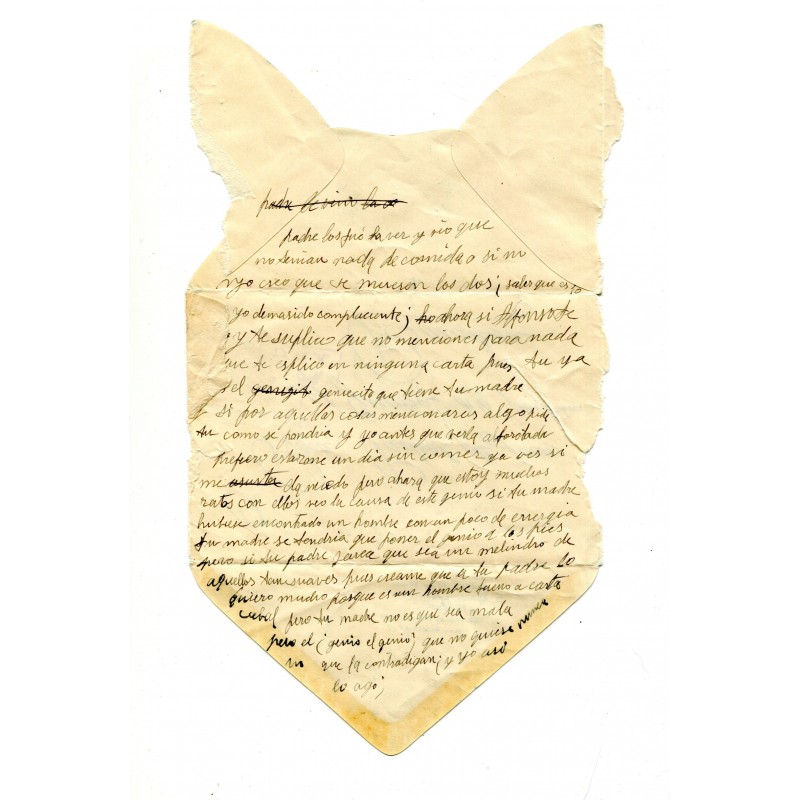 padre los fué a ver y vio que
no tenian nada de comida o si no
yo creo que se mueren los dos ¡ sabes que
yo demasido complaciente; ahora si Alfonso te
y te suplico que no menciones para nada
que te esplico en ninguna carta pues tu ya
el geniecito que tiene tu madre
y si por aquellas cosas mencionares algo
tu como se pondria y yo antes que verla alborotada
prefiero estarone un dia sin comer ya ves si
me da miedo pero ahora que estoy muchos
ratos con ellos veo la causa de este genio si tu madre
hubiese encontrado un hombre con un poco de energia
tu madre se tendria que poner el genio a los pies
pero si tu padre que sea un melindro de
aquellos tan suaves pues creame que a tu padre lo
quiero mucho porque es un hombre bueno a carta
cabal pero tu madre no es que sea mala
pero el ¡genio el genio¡ que no quiere nunca
que la contradigan; y yo
lo ago;